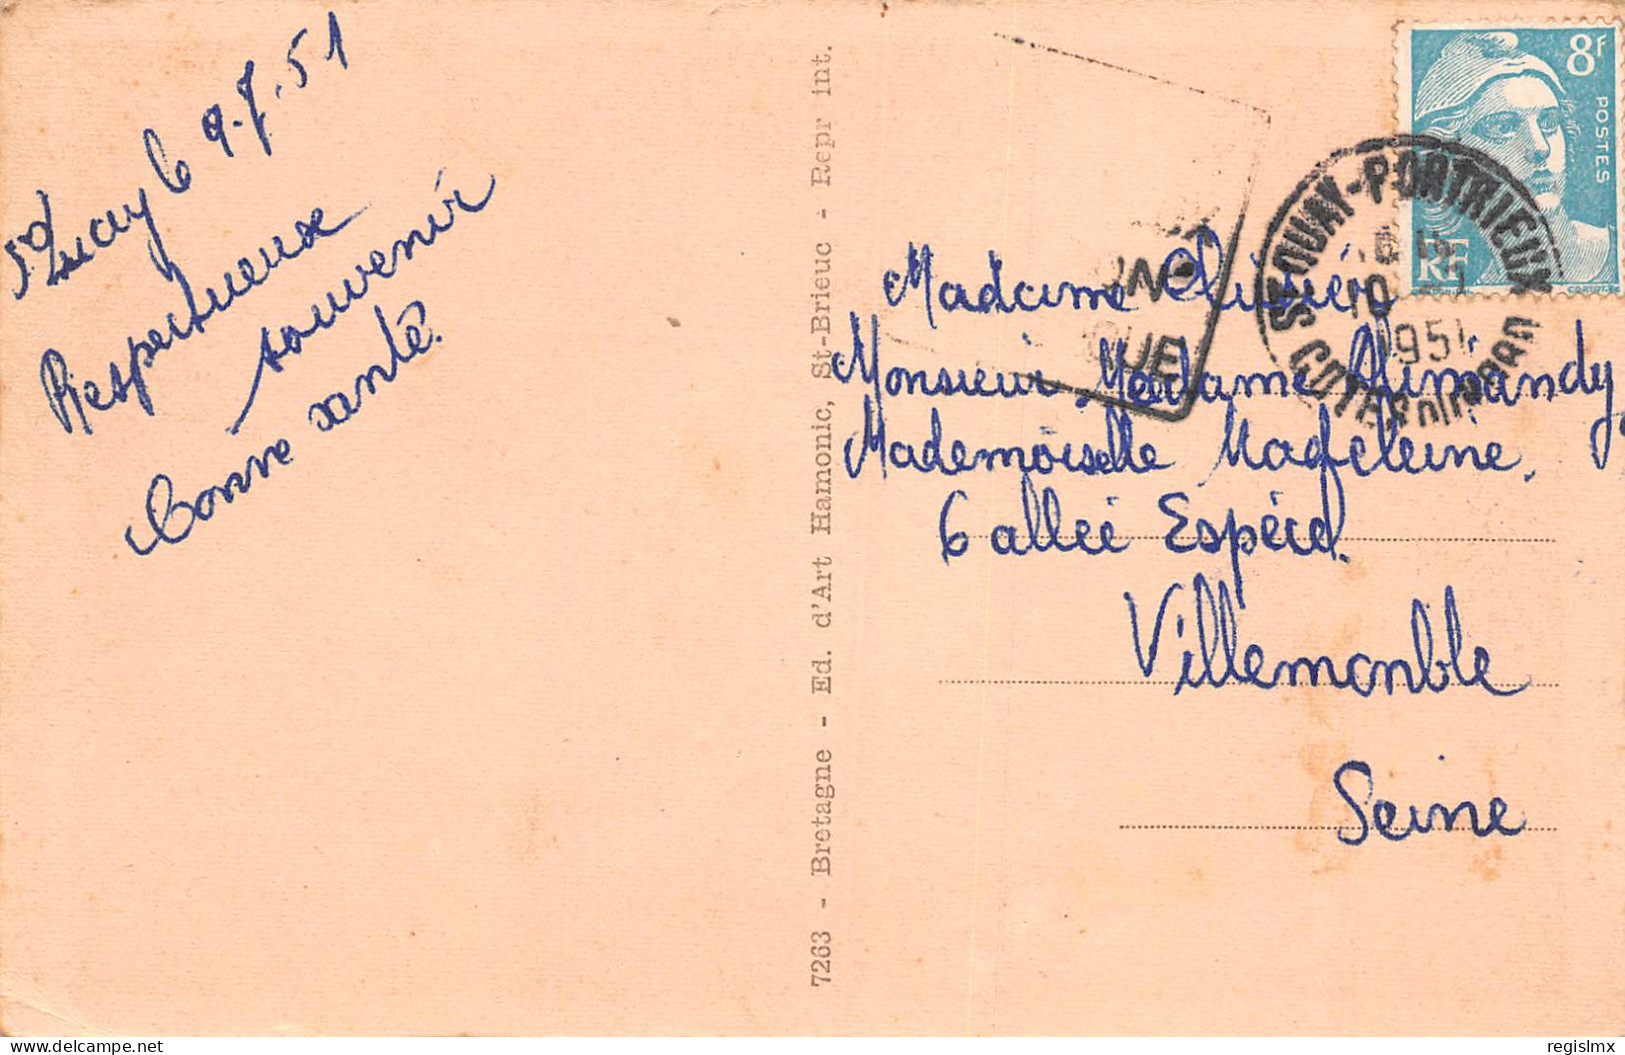 St Quay le 9.7.51
Respectueux
souvenir
Bonne santé.
7263 - Bretagne - Ed. d'Art Hamonic, St-Brieuc - Repr int.
8F
POSTES
RF
ST QUAY-PORTRIEUX
10
1951
COTES DU NORD
Madame
Monsieur Madame
Mademoiselle Madeleine.
6 allée Espéid.
Villemonble
Seine
delcampe.net
regislmx